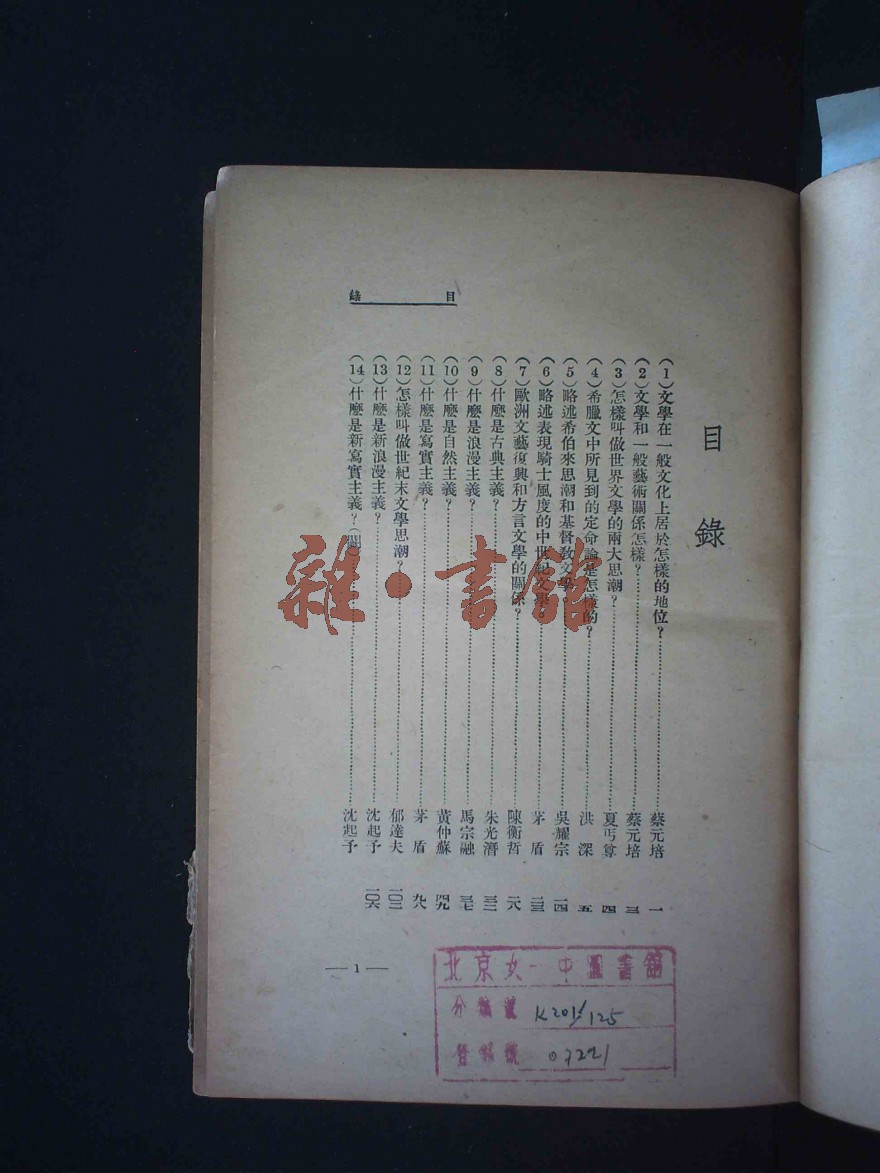 目錄
(1)文學在一般文化上居於怎樣的地位?……蔡元培 一
(2)文學和一般藝術關係怎樣?……蔡元培 三
(3)怎樣叫做世界文學的兩大思潮?……夏丏尊 四
(4)希臘文中所見到的定命論是怎樣的?……洪深 五
(5)略述希伯來思潮和基督教文學……吳耀宗 一四
(6)略述表現騎士風度的中世紀文學……茅盾 二三
(7)歐洲文藝復興和方言文學的關係?……陳衡哲 二八
(8)什麼是古典主義?……朱光潛 三三
(9)什麼是浪漫主義?……馬宗融 三七
(10)什麼是自然主義?……黃仲蘇 四九
(11)什麼是寫實主義?……茅盾 九八
(12)怎樣叫做世紀末文學思潮?……郁達夫 一〇三
(13)什麼是新浪漫主義?……沈起予 一〇六
(14)什麼是新寫實主義?(闕)……沈起予
目錄
—1—
雜·書館
北京女一中圖書館
分類號 K201/125
登錄號 07221